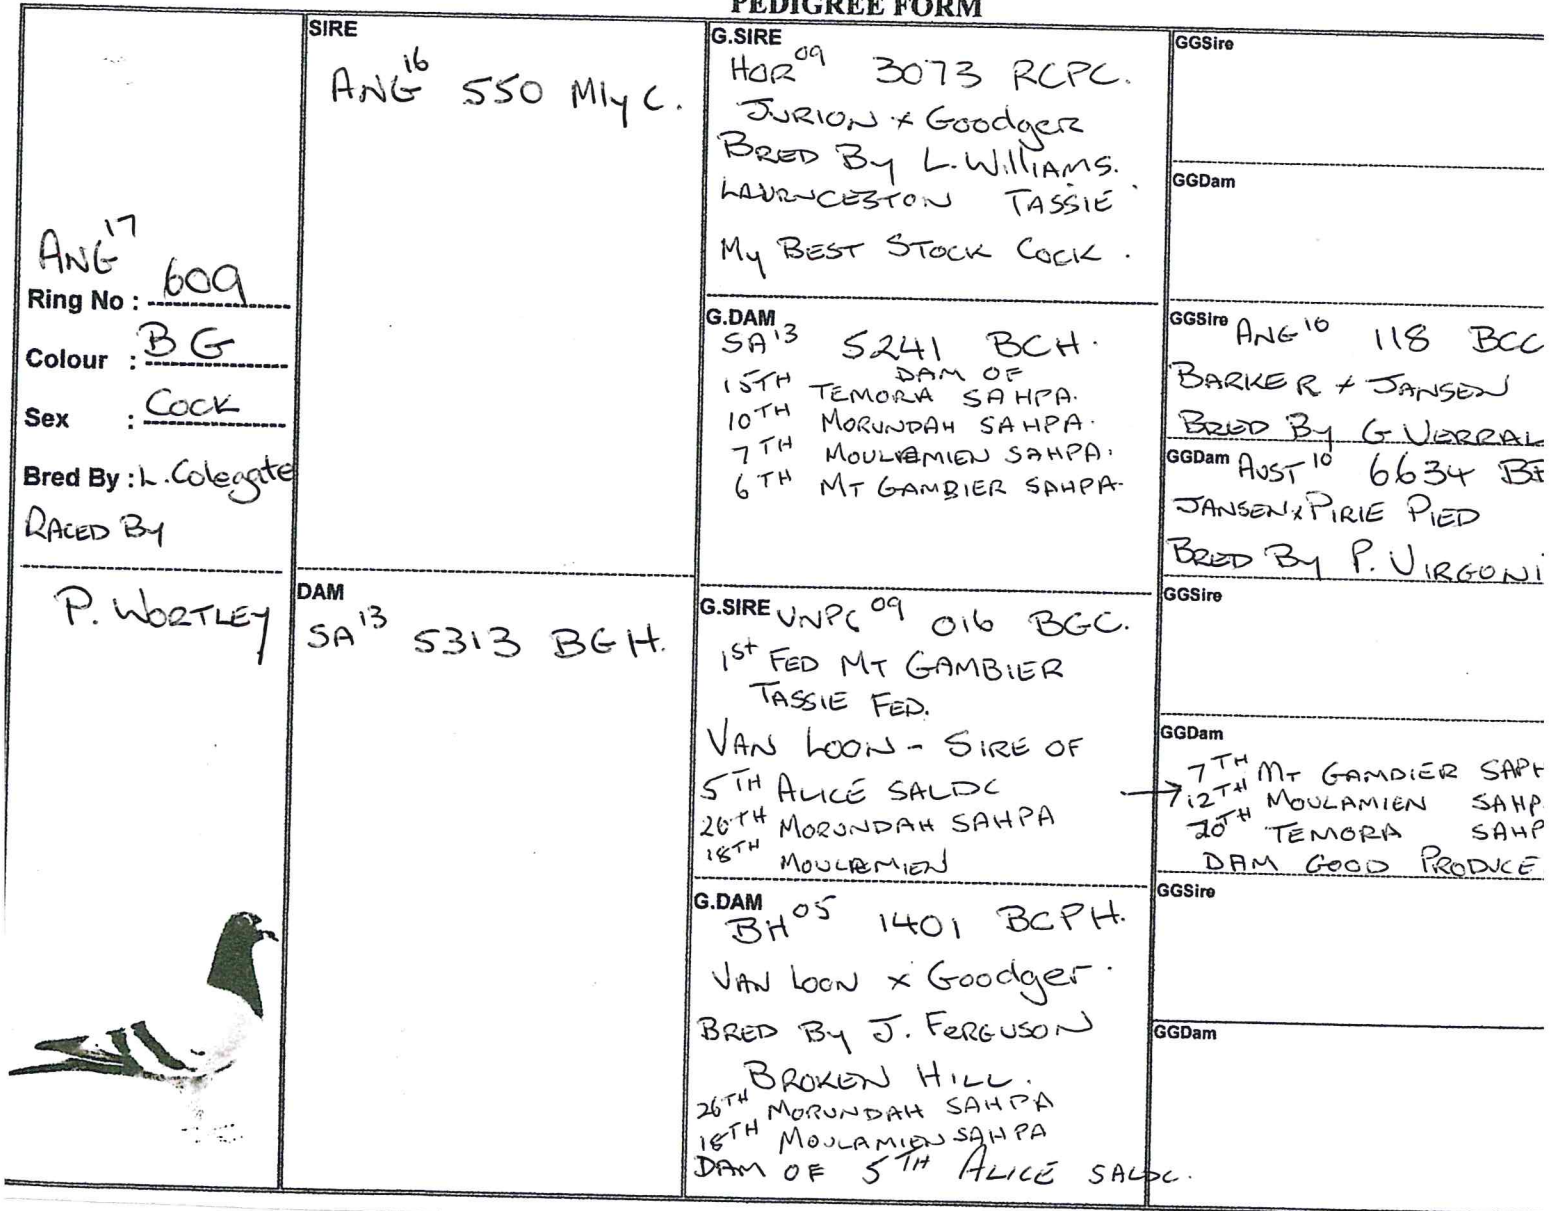 PEDIGREE FORM
ANG 17
Ring No : 609
Colour : BG
Sex : COCK
Bred By : L. Colegate
RACED By
P. WORTLEY
SIRE
ANG 16 550 Mly C.
DAM
SA 13 5313 BGH.
G.SIRE
HOR 09 3073 RCPC.
JURION x Goodger
BRED By L. WILLIAMS.
LAURNCESTON TASSIE
My BEST STOCK COCK.
G.DAM
SA 13 5241 BCH.
DAM OF
15TH TEMORA SAHPA.
10TH MORUNDAH SAHPA.
7TH MOULAMIEN SAHPA.
6TH MT GAMBIER SAHPA.
G.SIRE VNPC 09 016 BGC.
1st FED MT GAMBIER
TASSIE FED.
VAN LOON - SIRE OF
5TH ALICE SALDC
26TH MORUNDAH SAHPA
18TH MOULAMIEN
G.DAM
BH 05 1401 BCPH.
VAN LOON x Goodger.
BRED By J. FERGUSON
BROKEN HILL.
26TH MORUNDAH SAHPA
18TH MOULAMIEN SAHPA
DAM OF 5TH ALICE SALDC.
GGSire
GGDam
GGSire ANG 10 118 BCC
BARKER x JANSEN
BRED By G VERRAL
GGDam AUST 10 6634
JANSEN x PIRIE PIED
BRED By P. VIRGONI
GGSire
GGDam
7TH MT GAMBIER SAPH
12TH MOULAMIEN SAHP
20TH TEMORA SAHP
DAM GOOD PRODUCE
GGSire
GGDam